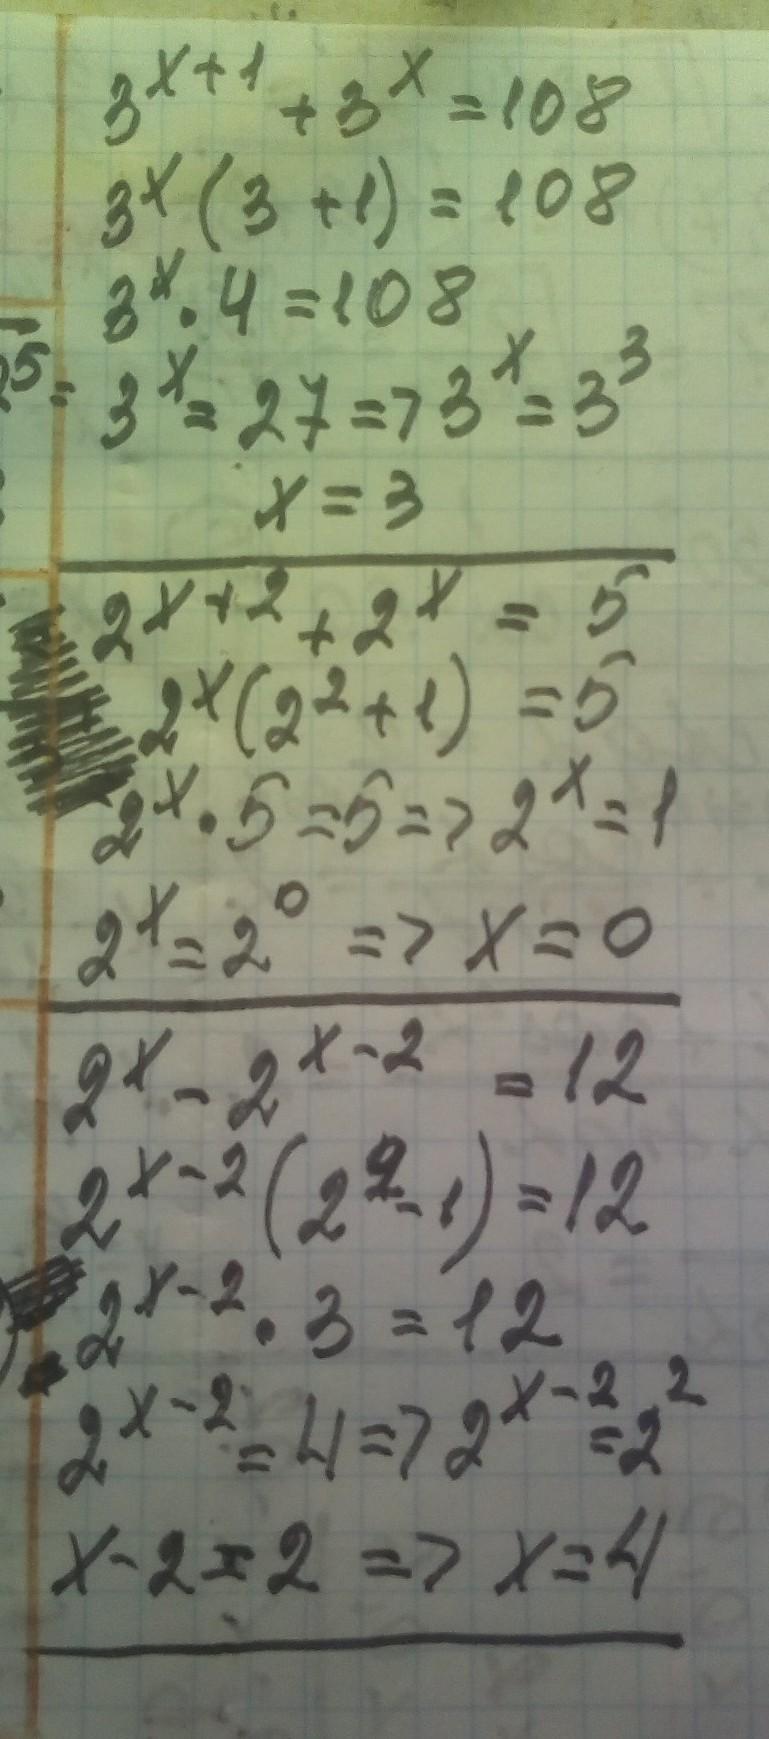 3^{x+1} + 3^x = 108
3^x (3 + 1) = 108
3^x · 4 = 108
3^x = 27 => 3^x = 3^3
x = 3
2^{x+2} + 2^x = 5
2^x (2^2 + 1) = 5
2^x · 5 = 5 => 2^x = 1
2^x = 2^0 => x = 0
2^x - 2^{x-2} = 12
2^{x-2} (2^2 - 1) = 12
2^{x-2} · 3 = 12
2^{x-2} = 4 => 2^{x-2} = 2^2
x - 2 = 2 => x = 4